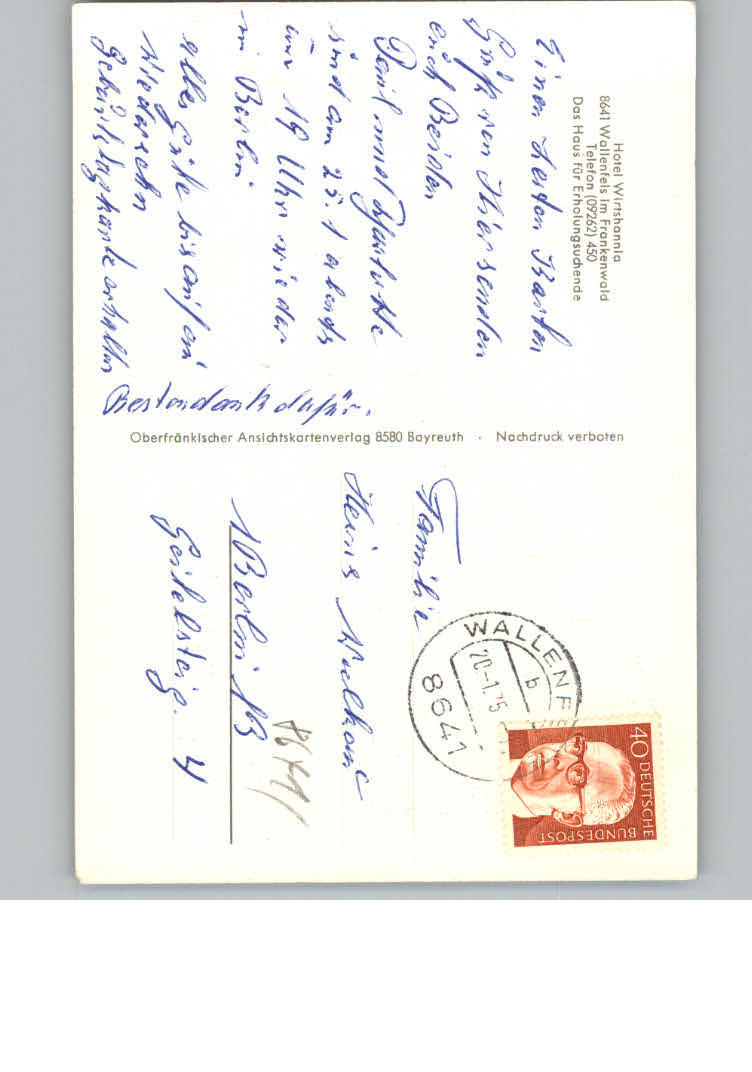 Hotel Wirtshannla
8641 Wallenfels im Frankenwald
Telefon (09262) 450
Das Haus für Erholungsuchende
Einen Lesten Karten
Grüß von Hier senden
euch Beiden
Paul und
sind am 25.1 abends
um 19 Uhr wieder
in Berlin.
alles Gute bis auf ein
wiedersehn
Geburtstagkarte erhalten
Besten dank dafür.
Oberfränkischer Ansichtskartenverlag 8580 Bayreuth · Nachdruck verboten
Familie
Heinz
1 Berlin 13
Geitelsteig. 4
WALLENF
20-1.75
b
8641
40 DEUTSCHE
BUNDESPOST